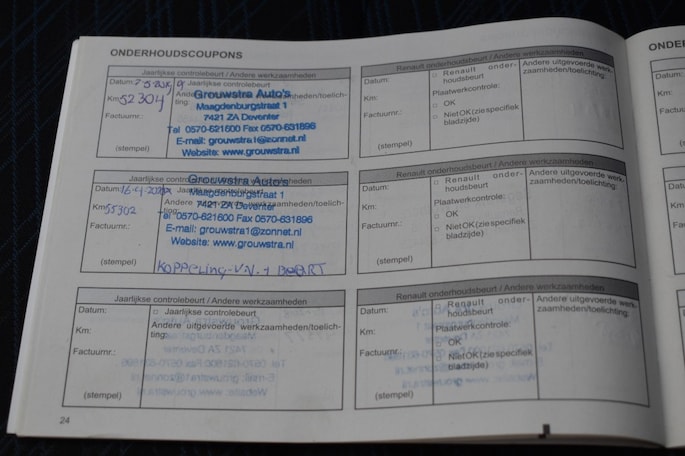 ONDERHOUDSCOUPONS
Jaarlijkse controlebeurt / Andere werkzaamheden
Datum:
Jaarlijkse controlebeurt
Km: 52304
Andere uitgevoerde werkzaamheden/toelichting:
Factuurnr.:
(stempel)
Grouwstra Auto's
Maagdenburgstraat 1
7421 ZA Deventer
Tel 0570-621600 Fax 0570-631896
E-mail: grouwstra1@zonnet.nl
Website: www.grouwstra.nl
Renault onderhoudsbeurt / Andere werkzaamheden
Datum:
Km:
Factuurnr.:
(stempel)
Renault onder-
houdsbeurt
Plaatwerkcontrole:
OK
Niet OK (zie specifiek
bladzijde)
Andere uitgevoerde werk-
zaamheden/toelichting:
Jaarlijkse controlebeurt / Andere werkzaamheden
Datum: 16-4
Km: 55302
Factuurnr.:
(stempel)
Grouwstra Auto's
Maagdenburgstraat 1
7421 ZA Deventer
Tel 0570-621600 Fax 0570-631896
E-mail: grouwstra1@zonnet.nl
Website: www.grouwstra.nl
KOPPELING-V.V. + BEURT
Renault onderhoudsbeurt / Andere werkzaamheden
Datum:
Km:
Factuurnr.:
(stempel)
Renault onder-
houdsbeurt
Plaatwerkcontrole:
OK
Niet OK (zie specifiek
bladzijde)
Andere uitgevoerde werk-
zaamheden/toelichting:
Jaarlijkse controlebeurt / Andere werkzaamheden
Datum:
Km:
Factuurnr.:
(stempel)
Jaarlijkse controlebeurt
Andere uitgevoerde werkzaamheden/toelich-
ting:
Renault onderhoudsbeurt / Andere werkzaamheden
Datum:
Km:
Factuurnr.:
(stempel)
Renault onder-
houdsbeurt
Plaatwerkcontrole:
OK
Niet OK (zie specifiek
bladzijde)
Andere uitgevoerde werk-
zaamheden/toelichting:
24
ONDER
Datum:
Km:
Factuurnr.:
(stempel)
Datum:
Km:
Factuurnr.:
(stempel)
Datum:
Km:
Factuurnr.:
(stempel)